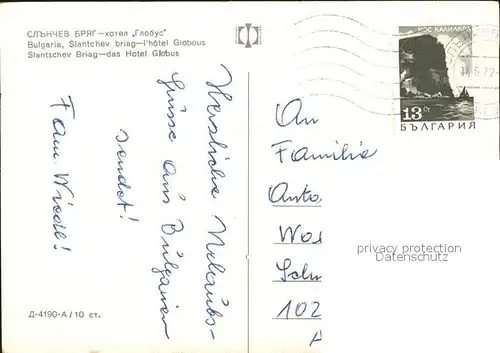 СЛЪНЧЕВ БРЯГ—хотел „Глобус"
Bulgaria, Slantchev briag—l'hôtel Globous
Slantschev Briag—das Hotel Globus
Herzliche Urlaubs-
Grüsse aus Bulgarien
sendet!
Fam.
Д-4190-А/10 ст.
НОС КАЛИАКРА
13 СТ
БЪЛГАРИЯ
An
Familie
Anto
Wos
Sch
102
privacy protection
Ansichtskarten-